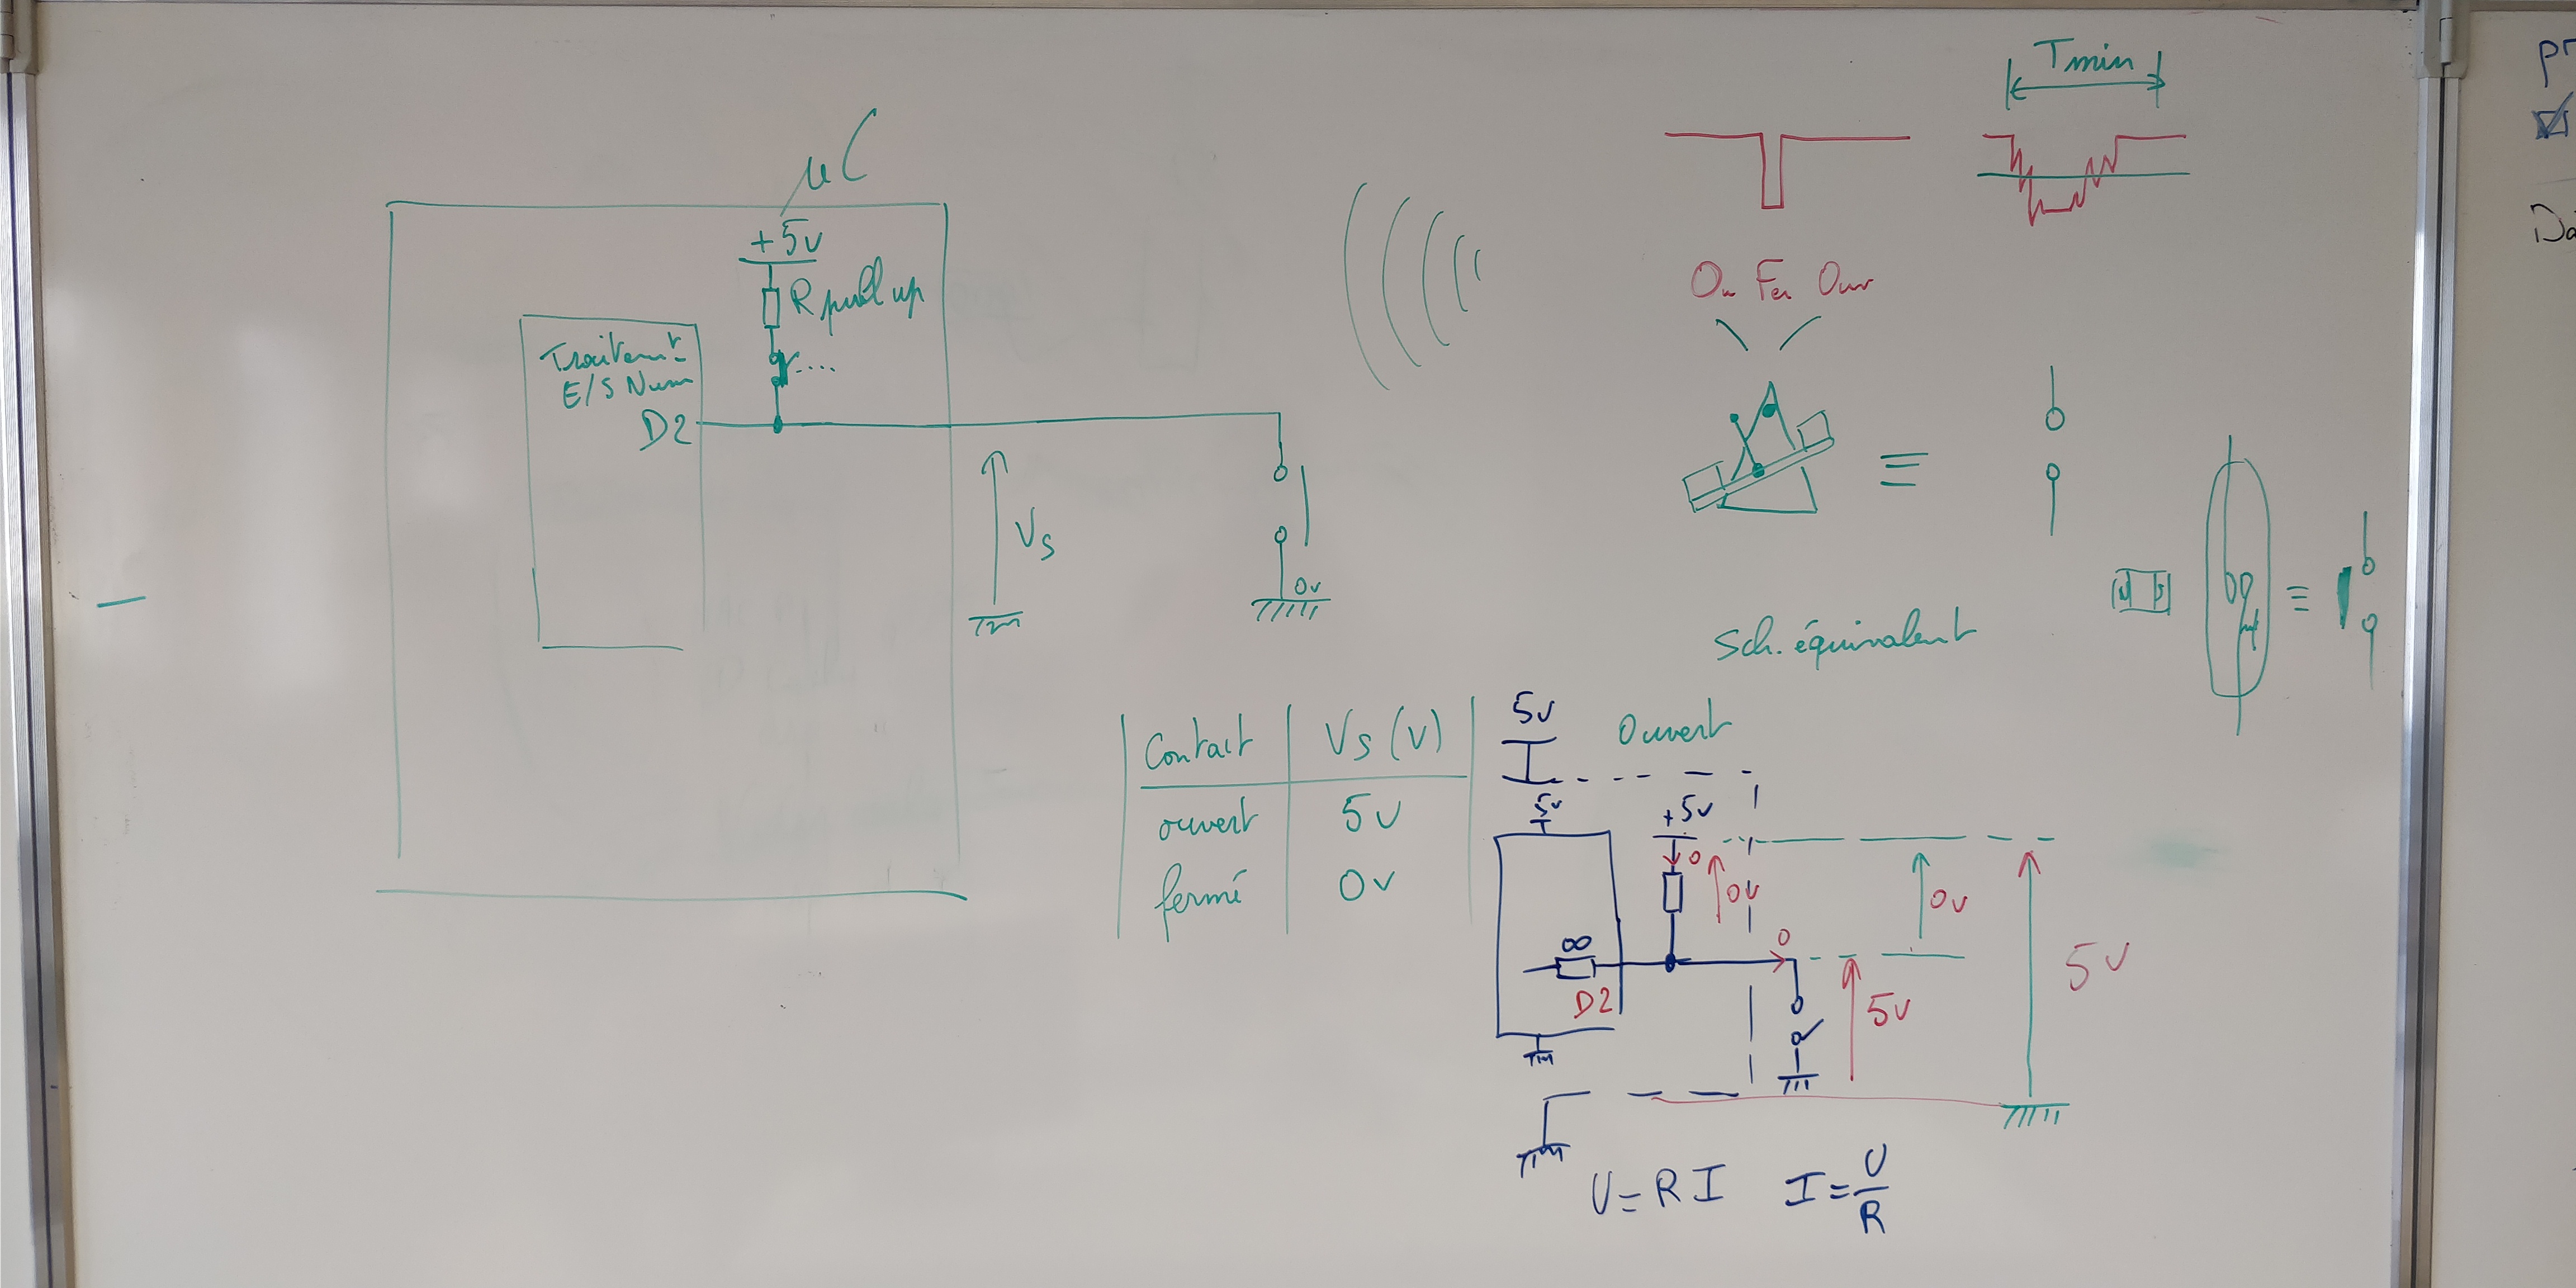 µC
+5v
R pull up
Traitemt
E/S Num
D2
Vs
0v
Tmin
Ou Fer Ouv
≡
≡
Sch. équivalent
Contact Vs (v)
ouvert 5v
fermé 0v
5v
Ouvert
5v
+5v
0
0v
0v
5v
∞
0
D2
5v
U = R I I = U/R
pr
Da